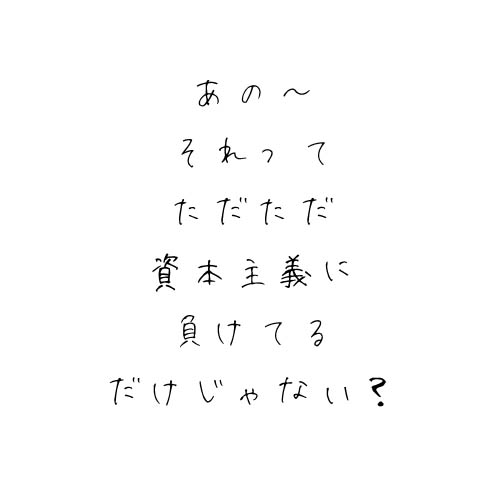 あの～
それって
ただただ
資本主義に
負けてる
だけじゃない?